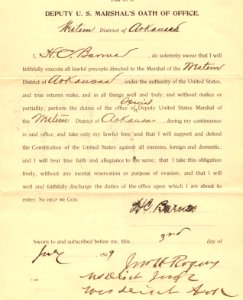 DEPUTY U. S. MARSHAL'S OATH OF OFFICE.
Western District of Arkansas
I, H. C. Barnes, do solemnly swear that I will
faithfully execute all lawful precepts directed to the Marshal of the Western
District of Arkansas under the authority of the United States,
and true returns make, and in all things well and truly, and without malice or
partiality, perform the duties of the office of Special Deputy United States Marshal of
the Western District of Arkansas during my continuance
in said office, and take only my lawful fees; and that I will support and defend
the Constitution of the United States against all enemies, foreign and domestic,
and I will bear true faith and allegiance to the same; that I take this obligation
freely, without any mental reservation or purpose of evasion; and that I will
well and faithfully discharge the duties of the office upon which I am about to
enter: So HELP ME GOD.
H C Barnes
Sworn to and subscribed before me, this 3rd day of
Jno H Rogers
US Dist Judge